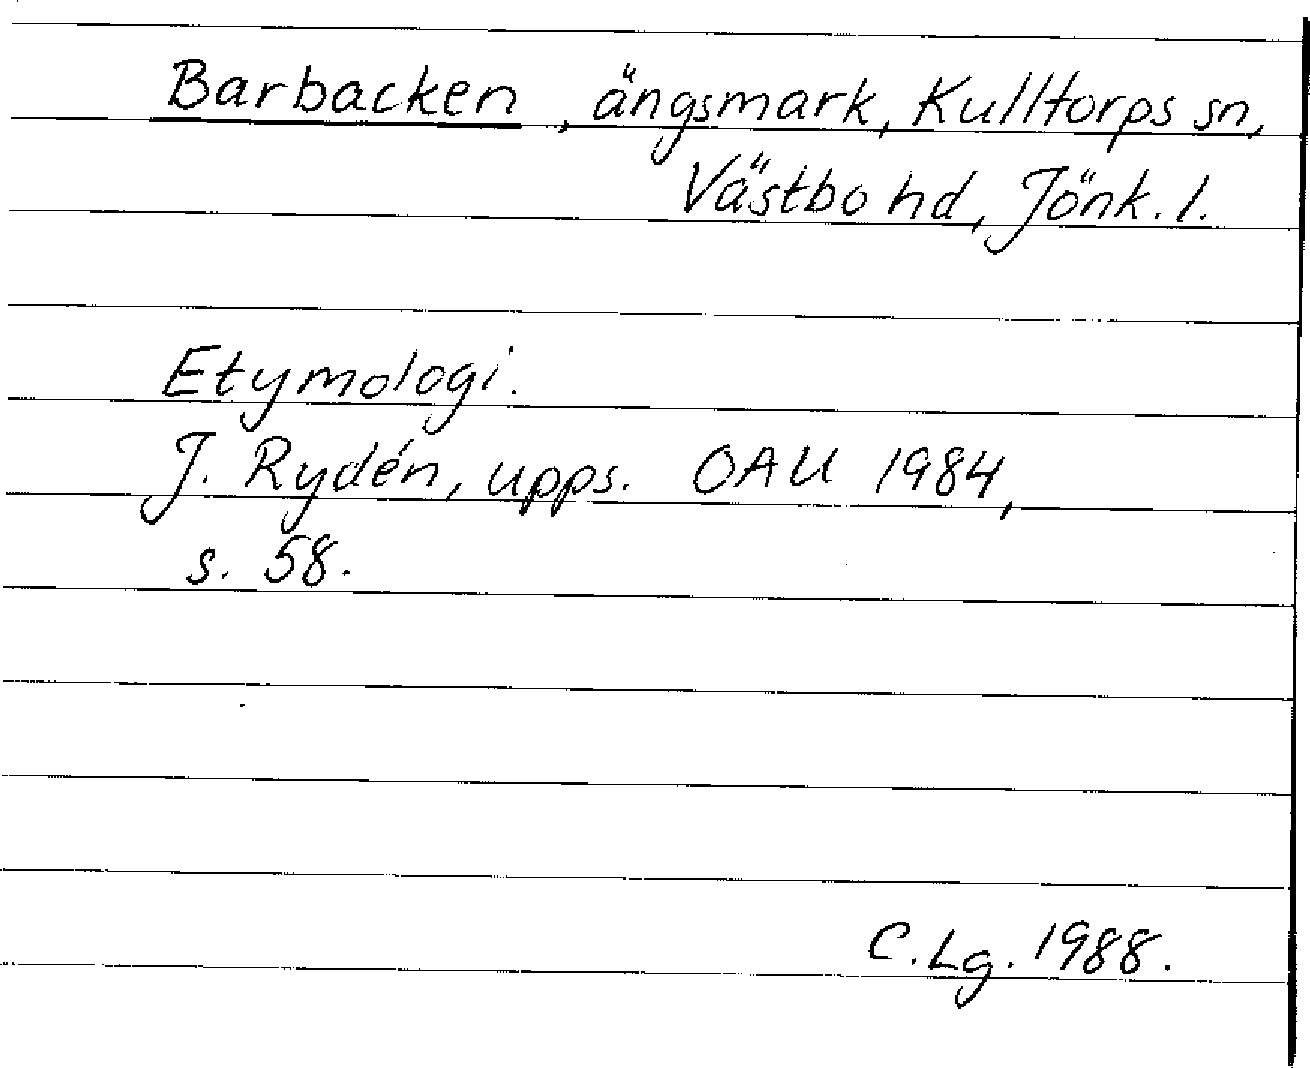 Barbacken, ängsmark, Kulltorps sn,
Västbo hd, Jönk. l.
Etymologi.
J. Rydén, upps. OAU 1984,
s. 58.
C.Lg. 1988.